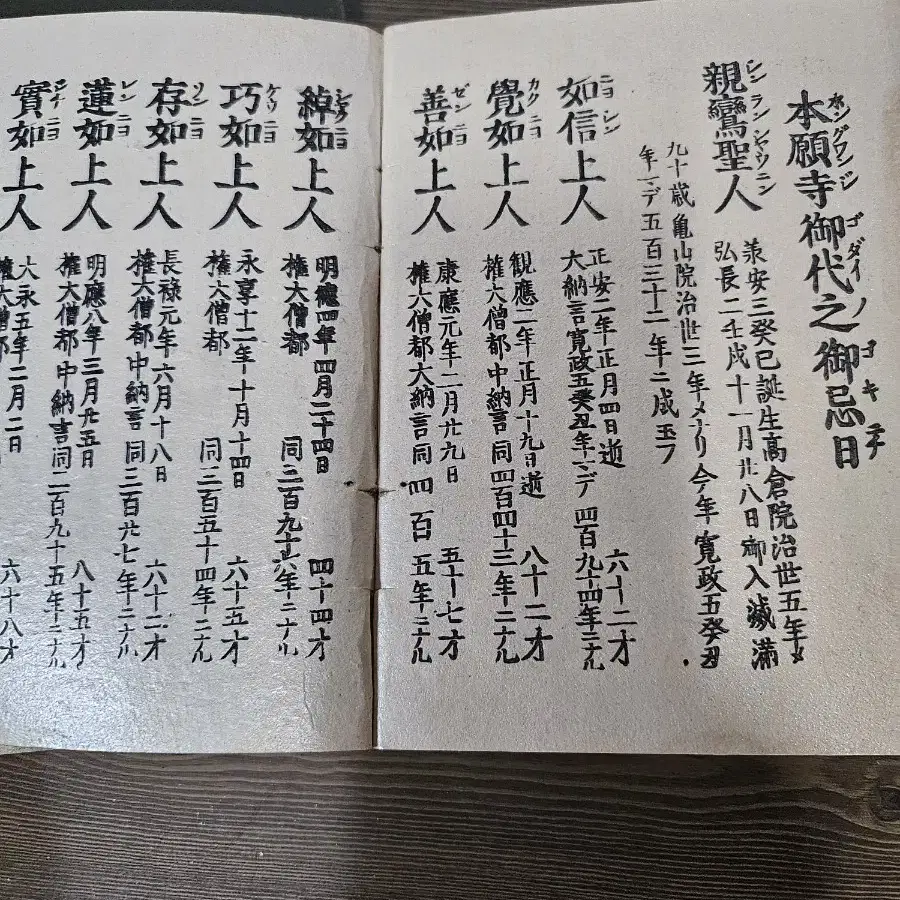 本願寺御代之御忌日
ホングワンジ ゴダイノ ゴキ
親鸞聖人
シンランシヤウニン
承安三癸巳誕生高倉院治世五年メ
弘長二壬戌十一月廿八日御入滅満
九十歳亀山院治世三年メナリ今年寛政五癸丑
年マデ五百三十二年ニ成玉フ
如信上人
ニヨシン
正安二年正月四日逝 六十二才
大納言寛政五癸丑年マデ四百九十四年ニナル
覺如上人
カクニヨ
観應二年正月十九日逝 八十二才
権大僧都中納言同四百四十三年ニナル
善如上人
ゼンニヨ
康應元年二月廿九日 五十七才
権大僧都大納言同四百五年ニナル
綽如上人
シヤクニヨ
明徳四年四月二十四日 四十四才
権大僧都 同三百九十六年ニナル
巧如上人
ケウニヨ
永享十二年十月十四日 六十五才
権大僧都 同三百五十四年ニナル
存如上人
ソンニヨ
長禄元年六月十八日 六十二才
権大僧都中納言同三百廿七年ニナル
蓮如上人
レンニヨ
明應八年三月廿五日 八十五才
権大僧都中納言同二百九十五年ニナル
實如上人
ジツニヨ
大永五年二月二日 六十八才
権大僧都